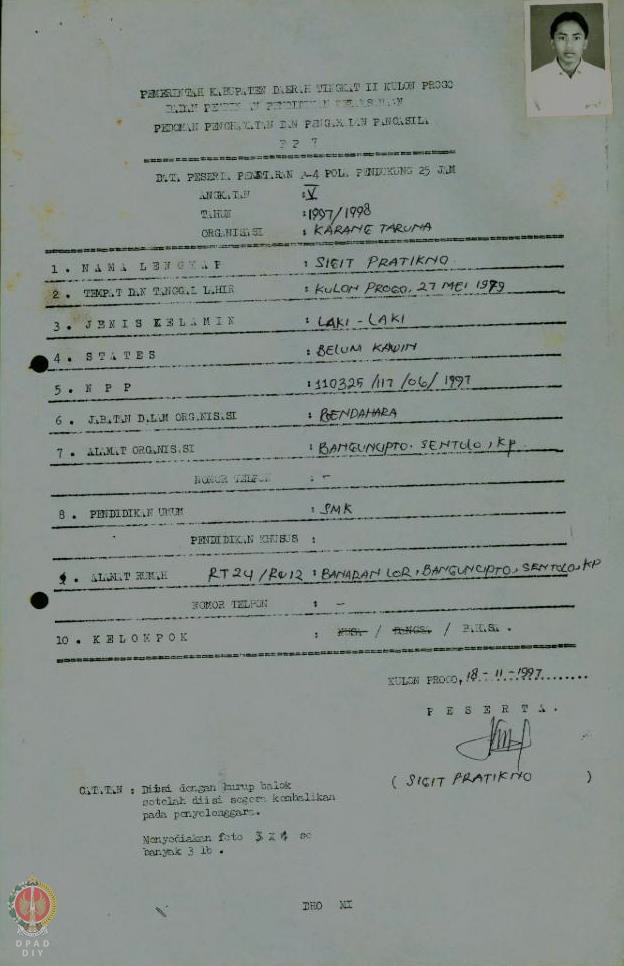 PEMERINTAH KABUPATEN DAERAH TINGKAT II KULON PROGO
BADAN PEMBINAAN PENDIDIKAN PELAKSANAAN
PEDOMAN PENGHAYATAN DAN PENGAMALAN PANCASILA
B P 7
PESERTA PENATARAN A-4 POLA PENDUKUNG 25 JAM
ANGKATAN : V
TAHUN : 1997/1998
ORGANISASI : KARANG TARUNA
1. NAMA LENGKAP : SIGIT PRATIKNO
2. TEMPAT DAN TANGGAL LAHIR : KULON PROGO, 27 MEI 1979
3. JENIS KELAMIN : LAKI - LAKI
4. STATES : BELUM KAWIN
5. N P P : 110325 /117 /06/ 1997
6. JABATAN DALAM ORGANISASI : BENDAHARA
7. ALAMAT ORGANISASI : BANGUNCIPTO. SENTOLO, KP.
NOMOR TELPON : -
8. PENDIDIKAN UMUM : SMK
PENDIDIKAN KHUSUS :
9. ALAMAT RUMAH RT 24 / RW 12 : BANARAN LOR, BANGUNCIPTO, SENTOLO, KP
NOMOR TELPON : -
10. KELOMPOK : NUSA / BANGSA / BAHASA.
KULON PROGO, 18 - 11 - 1997
P E S E R T A.
( SIGIT PRATIKNO )
CATATAN : Diisi dengan hurup balok
setelah diisi segera kembalikan
pada penyelenggara.
Menyediakan foto 3 X 4 se
banyak 3 lb.
DHO MI
DPAD
DIY